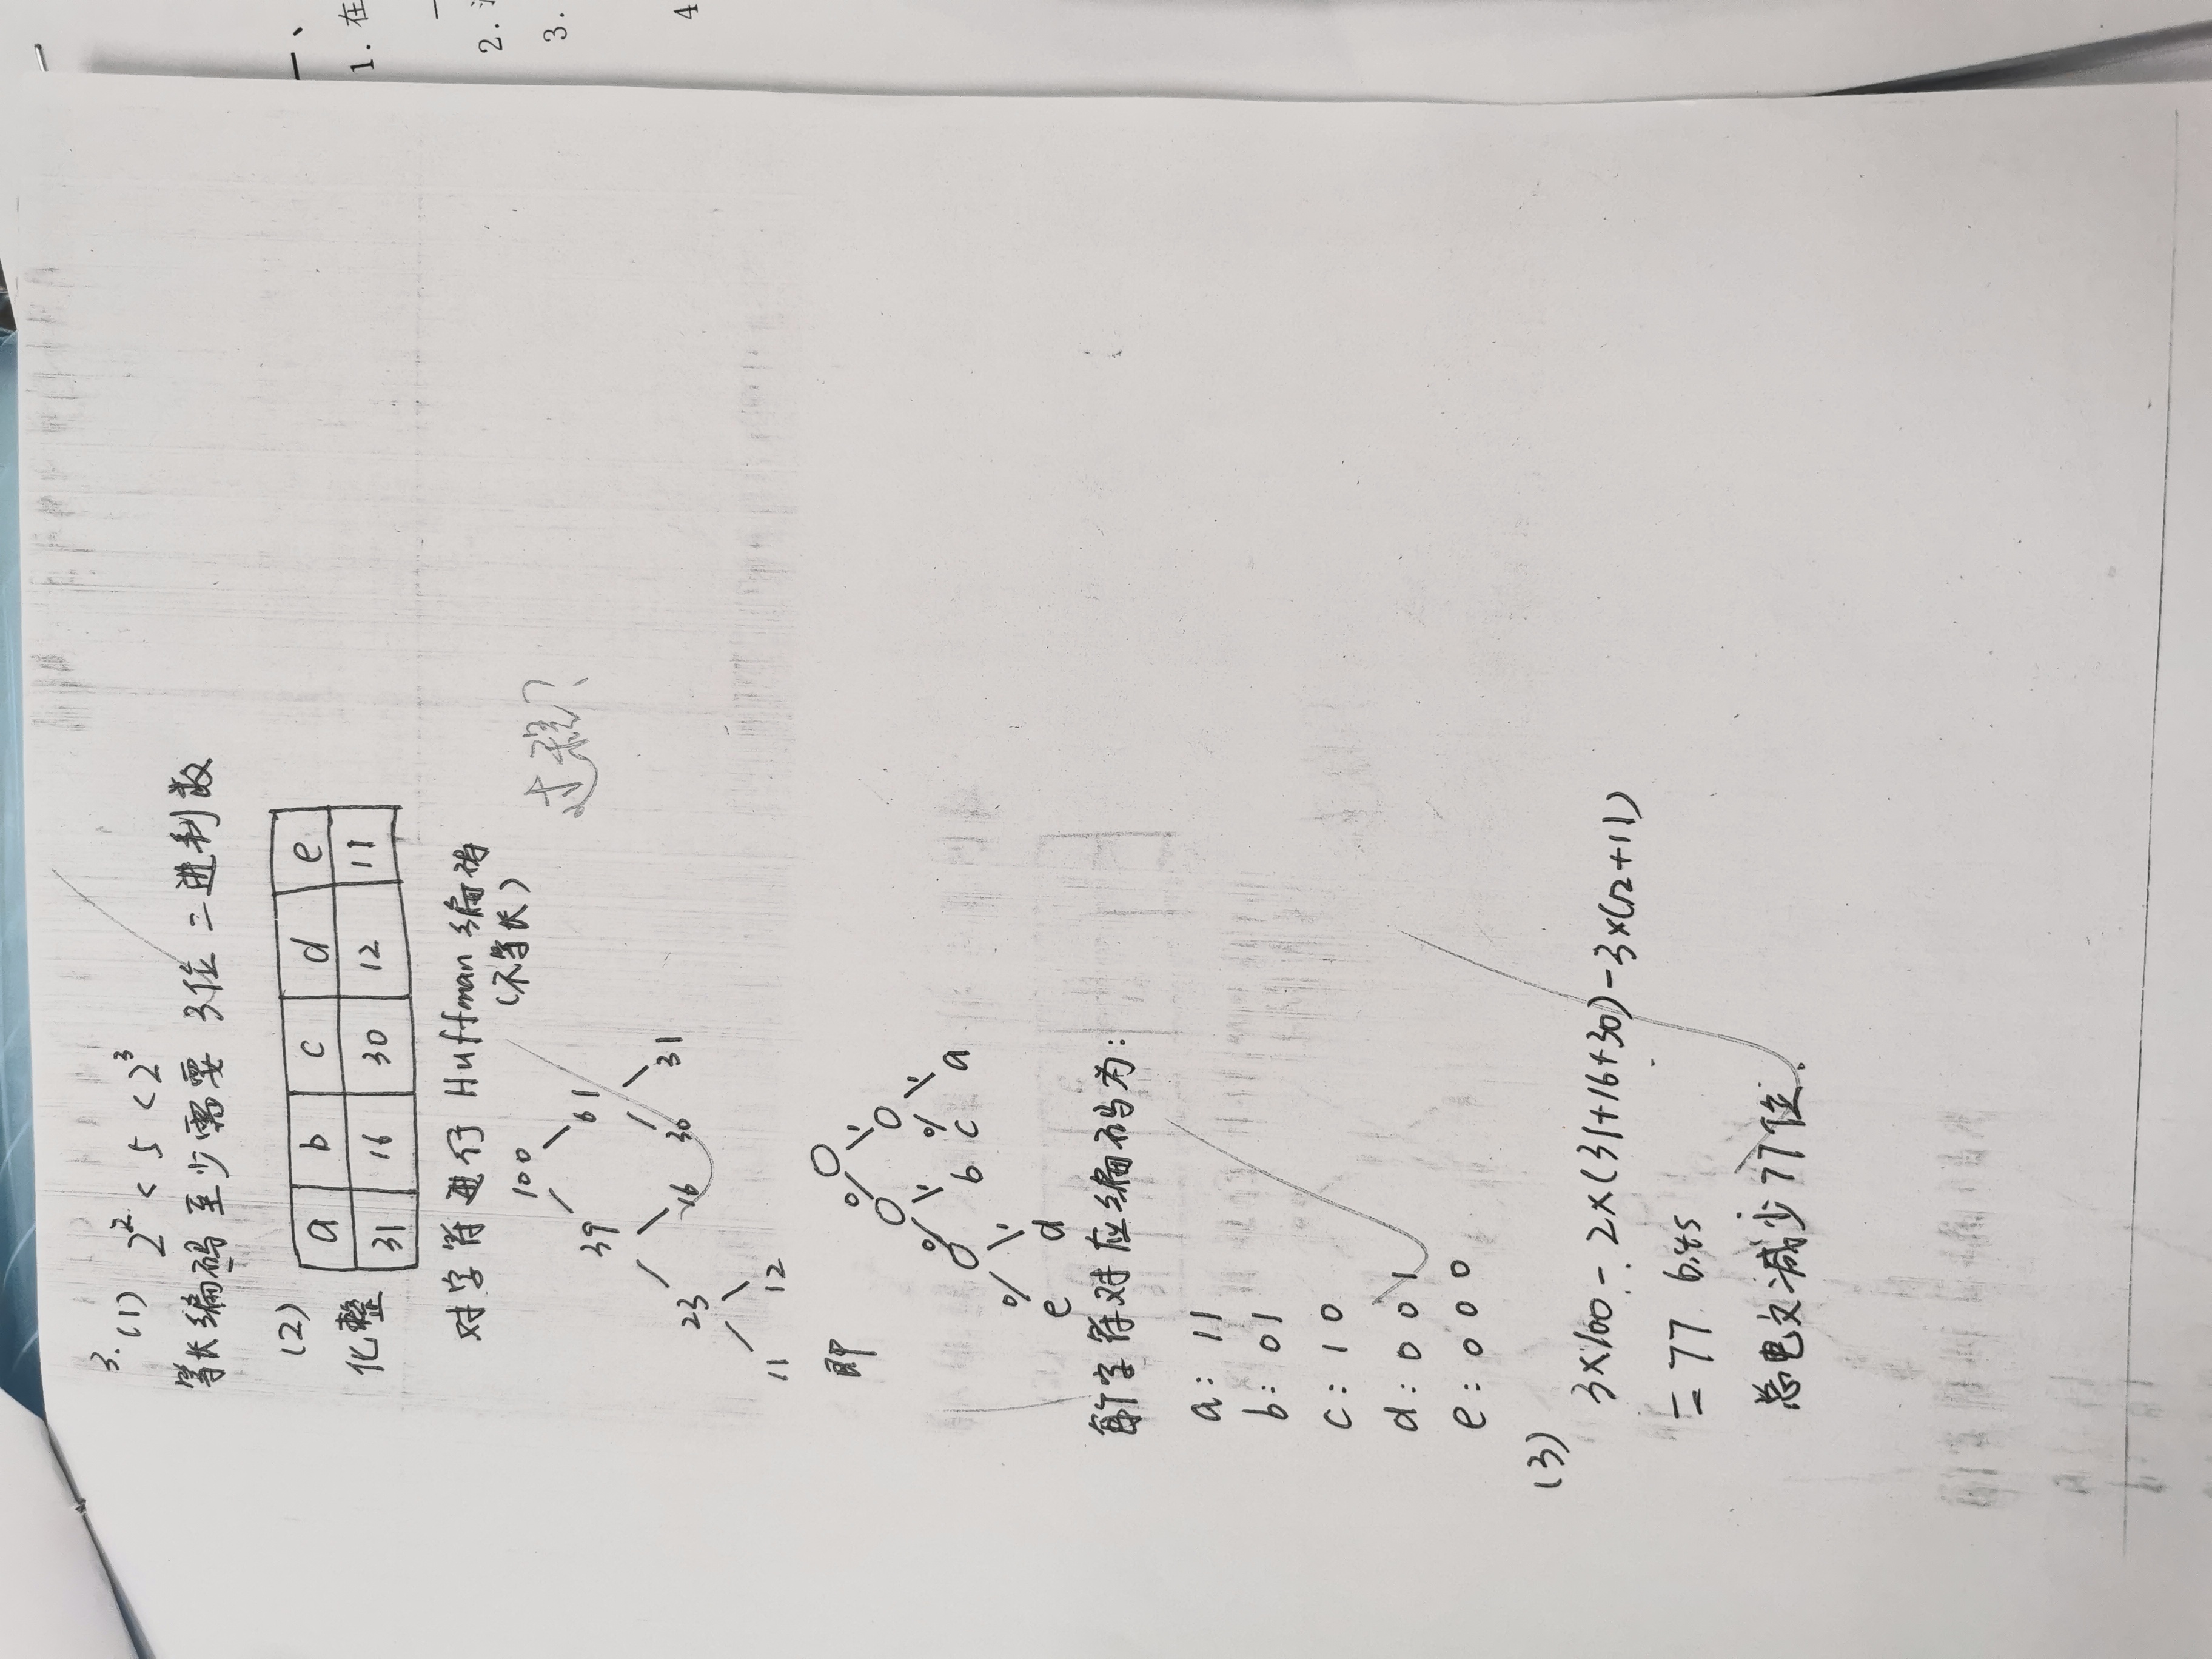 3. (1) 2² < 5 < 2³
等长编码至少需要 3位 二进制数
(2)
a b c d e
化整 31 16 30 12 11
对字符进行 Huffman 编码
(不等长)
100
过程?
39 61
23 16 30 31
11 12
即
0 1
0 1 0 1
b c a
0 1
e d
每个字符对应编码为:
a: 11
b: 01
c: 10
d: 001
e: 000
(3)
3×100 - 2×(31+16+30) - 3×(12+11)
= 77 bits
总电文减少77位.
一、
1. 在
2.
3.
4